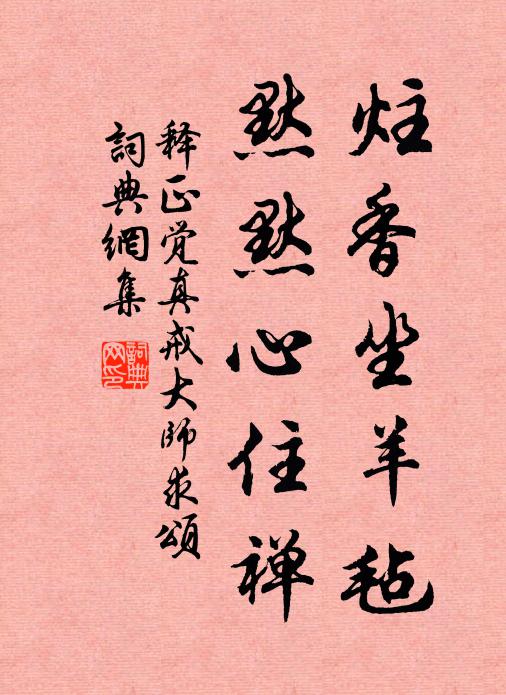 炷香坐羊毡
默默心住禅
释正觉真戒大师求颂
詞典網集
詞典网印